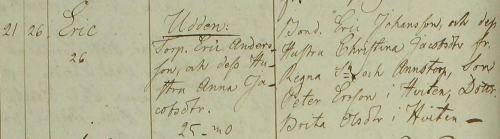 21 26. Eric
26
Udden:
Torp. Eric Anders-
son, och dess Hu-
stru Anna Ja-
cobsdtr.
25 - mo
Bond. Eric Johansson, och dess
Hustru Christina Jacobsdtr fr.
Regna Sn och Annstorp, Son
Peter Ersson i Hviten, Dotr.
Brita Olsdr i Hviten -